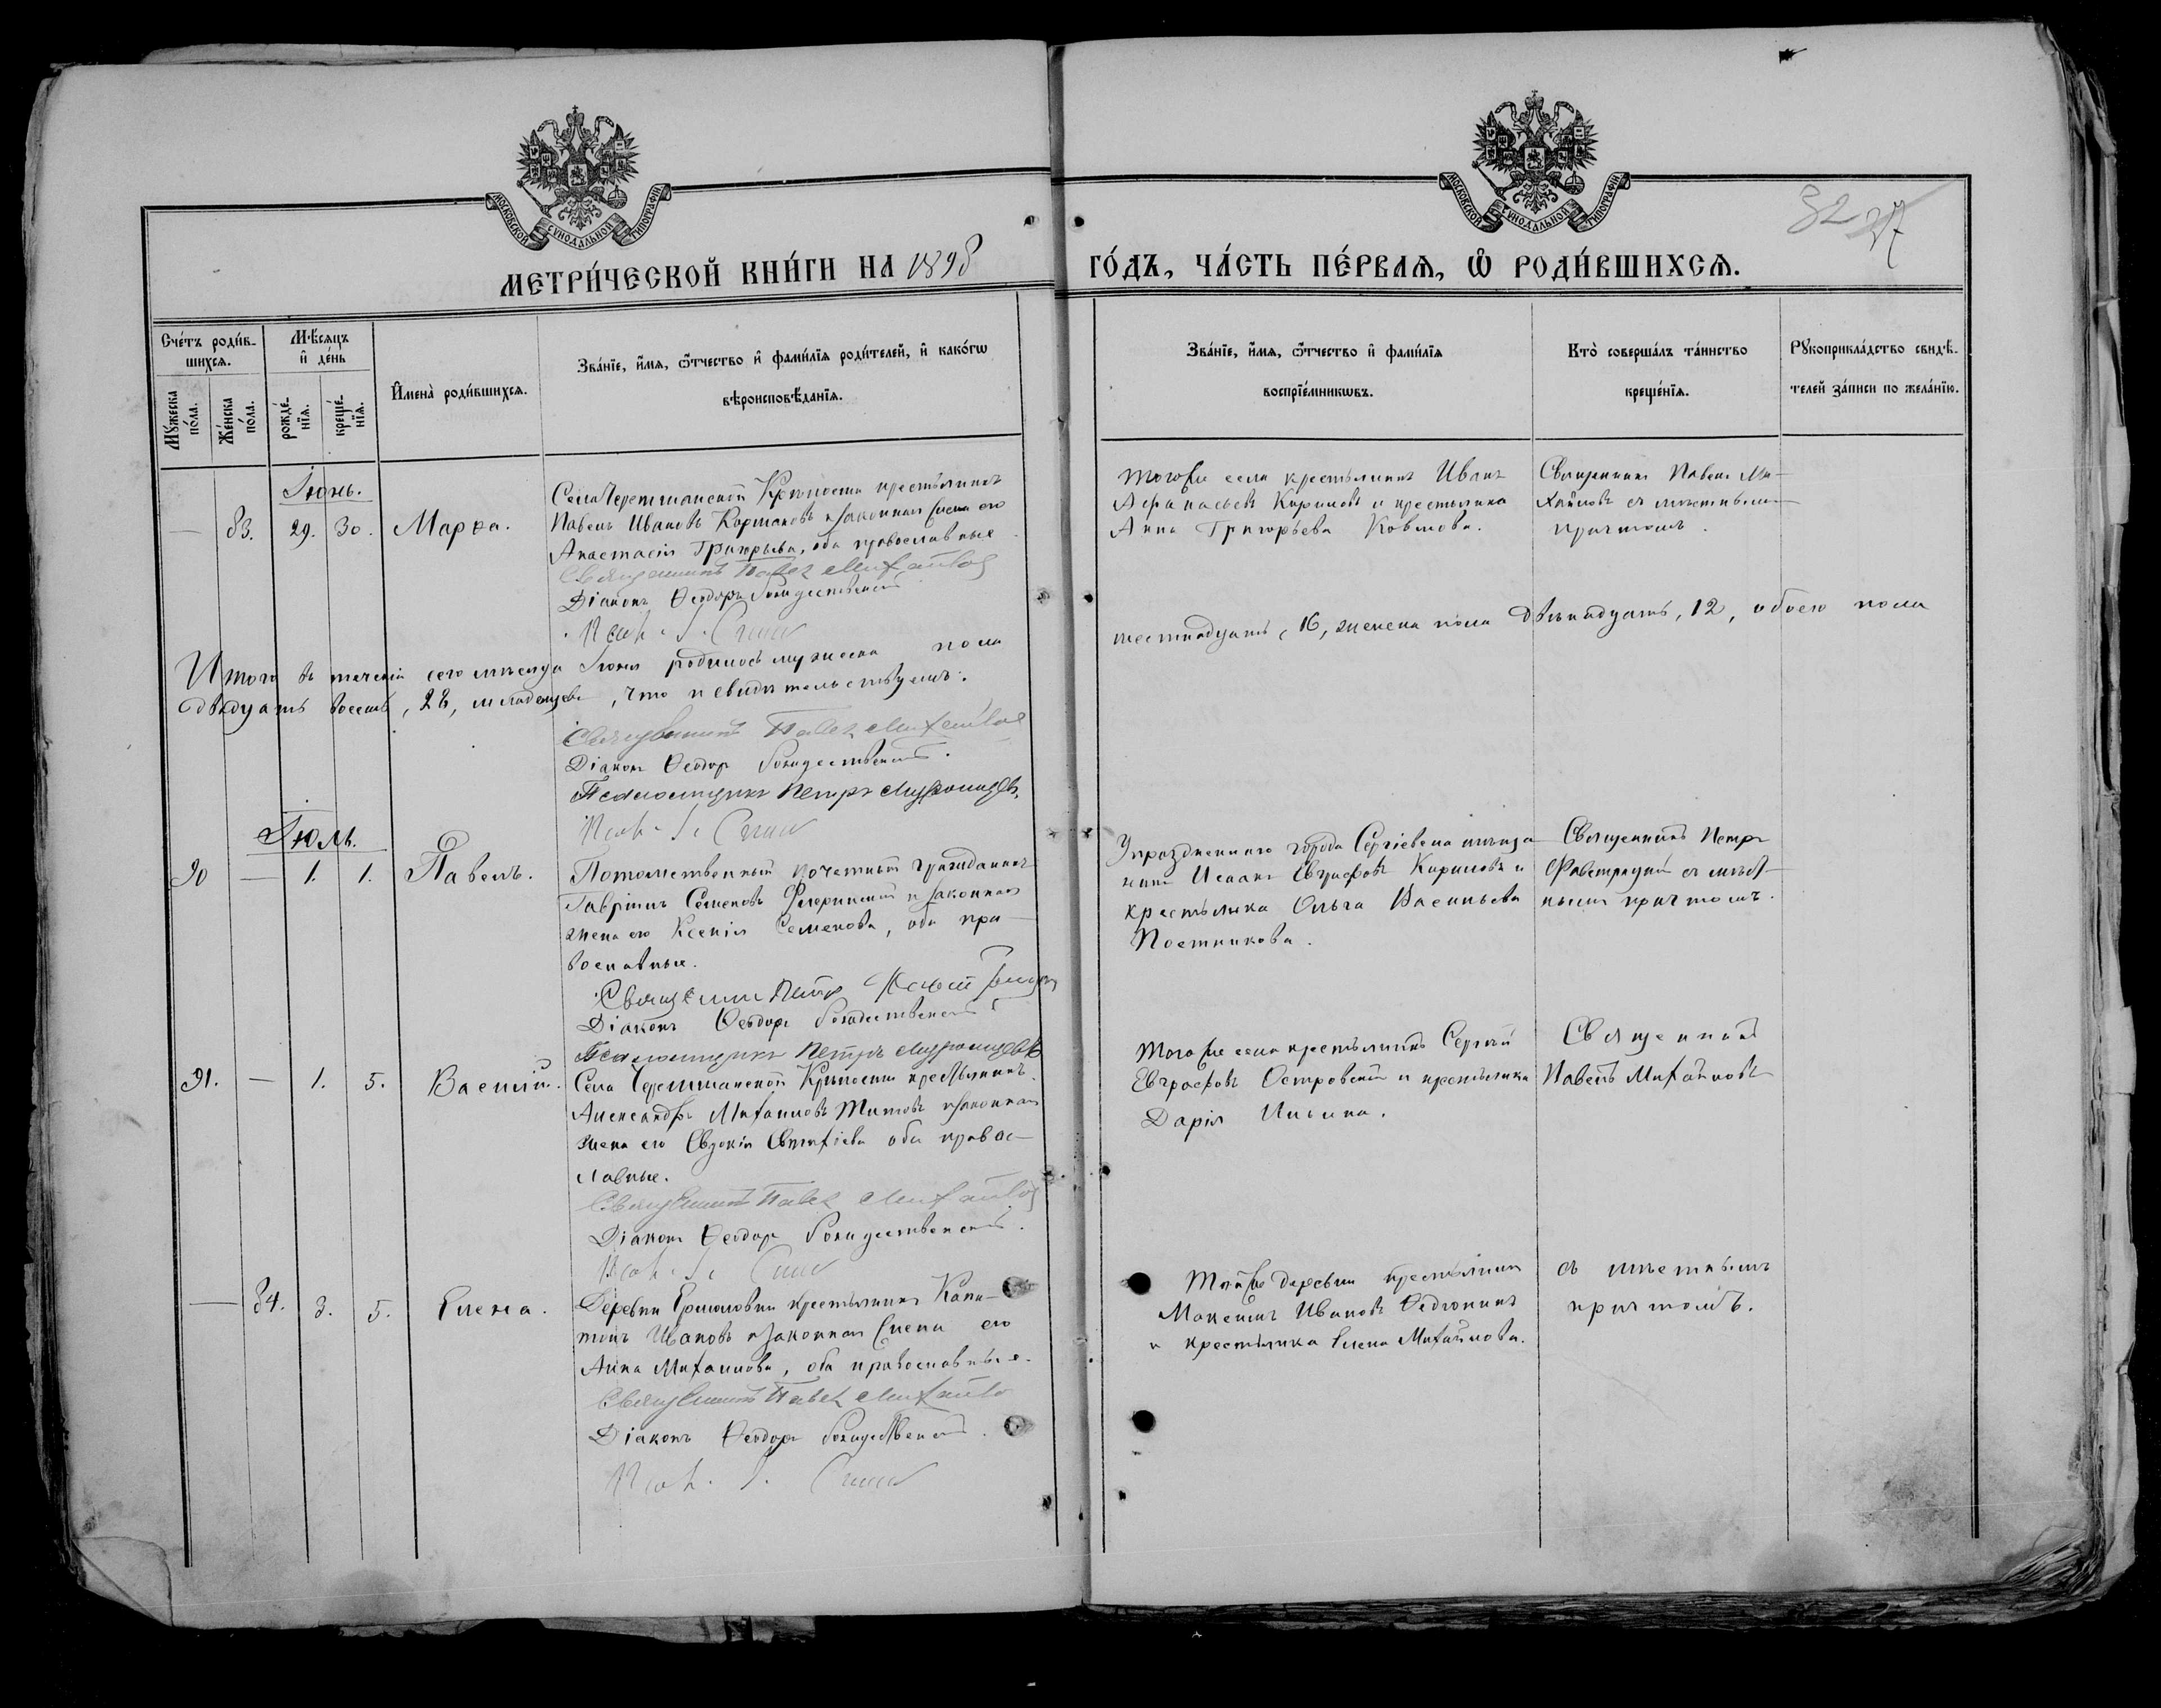 МОСКОВСКОЙ СѴНОДАЛЬНОЙ ТИПОГРАФІИ
МОСКОВСКОЙ СѴНОДАЛЬНОЙ ТИПОГРАФІИ
82
МЕТРИ́ЧЕСКОЙ КНИ́ГИ НА 1898
ГО́ДЪ, ЧА́СТЬ ПЕ́РВАЯ, Ѡ РОДИ́ВШИХСЯ.
Сче́тъ роди́в-
шихся.
Мѣ́сяцъ
и де́нь
Мꙋ́жеска
по́ла.
Же́нска
по́ла.
рожде́-
нїя.
креще́-
нїя.
Имена̀ роди́вшихся.
Зва́нїе, и́мя, ѻ́тчество и фами́лїя роди́телей, и како́гѡ
вѣроисповѣ́данїя.
Зва́нїе, и́мя, ѻ́тчество и фами́лїя
воспрїе́мникѡвъ.
Кто̀ соверша́лъ та́инство
креще́нїя.
Рꙋкоприкла́дство свидѣ́-
телей за́писи по жела́нїю.
Іюнь.
— 83. 29. 30. Марѳа.
Села Черемшанской Крѣпости крестьянинъ
Павелъ Ивановъ и законная жена его
Анастасія Григорьева, оба православные
Священникъ Павелъ Михайловъ
Діаконъ Ѳеодоръ Рождественскій
Того же села крестьянинъ Иванъ
Аѳанасьевъ Кириловъ и крестьянка
Анна Григорьева
Священникъ Павелъ Ми-
хайловъ съ мѣстнымъ
причтомъ.
Итого въ теченіи сего мѣсяца Іюня родилось мужеска пола
шестнадцать, 16, женска пола двѣнадцать, 12, обоего пола
двадцать восемь, 28, младенцевъ, что и свидѣтельствуемъ:
Священникъ Павелъ Михайловъ
Діаконъ Ѳеодоръ Рождественскій.
Псаломщикъ Петръ
Іюль.
90 — 1. 1. Павелъ.
Потомственный почетный гражданинъ
Гавріилъ Семеновъ и законная
жена его Ксенія Семенова, оба пра-
вославные.
Священникъ Петръ
Діаконъ Ѳеодоръ Рождественскій
Псаломщикъ Петръ
Упраздненнаго города Сергіевска мѣща-
нинъ Исаакъ Евграфовъ Кириловъ и
крестьянка Ольга Васильева
Постникова.
Священникъ Петръ
съ мѣст-
нымъ причтомъ.
91. — 1. 5. Василій.
Села Черемшанской Крѣпости крестьянинъ
Александръ Михаиловъ Титовъ и законная
жена его Евдокія Евтихіева оба право-
славные.
Священникъ Павелъ Михайловъ
Діаконъ Ѳеодоръ Рождественскій.
Того же села крестьянинъ Сергѣй
Евграфовъ Островскій и крестьянка
Дарія Ильина.
Священникъ
Павелъ Михайловъ
— 84. 3. 5. Елена.
Деревни Ермоловки крестьянинъ Капи-
тонъ Ивановъ и законная жена его
Анна Михаилова, оба православные.
Священникъ Павелъ Михайловъ
Діаконъ Ѳеодоръ Рождественскій.
Той же деревни крестьянинъ
Максимъ Ивановъ Ѳедюнинъ
и крестьянка Елена Михайлова.
съ мѣстнымъ
причтомъ.